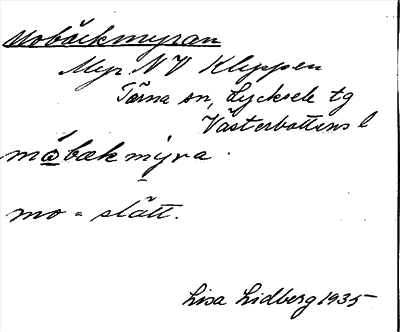 Mobäckmyran
Myr NV Kleppen
Tärna sn, Lycksele tg
Västerbottens l
mo = slätt.
Lisa Lidberg 1935